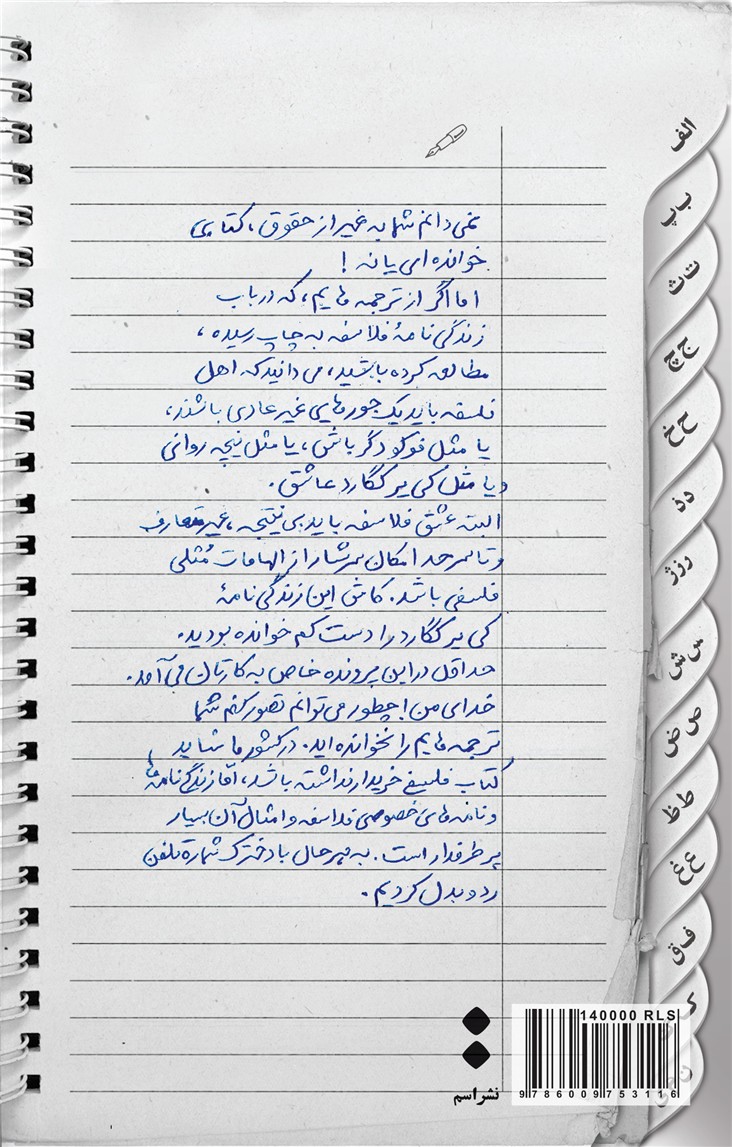 نمی‌دانم شما به غیر از حقوق، کتابی
خوانده‌ای یا نه !
اما اگر از ترجمه‌هایم، که در باب
زندگی‌نامهٔ فلاسفه به چاپ رسیده،
مطالعه کرده باشید، می‌دانید که اهل
فلسفه باید یک جورهایی غیر عادی باشند،
یا مثل فوکو دگرباش، یا مثل نیچه روانی
و یا مثل کی‌یرکگارد عاشق.
البته عشق فلاسفه باید بی‌نتیجه، غیرمتعارف
و تا سرحد امکان سرشار از الهامات مُثلی
فلسفی باشد. کاش این زندگی‌نامهٔ
کی‌یرکگارد را دست کم خوانده بودید.
حداقل در این پرونده خاص به کارتان می‌آمد.
خدای من! چطور می‌توانم تصور کنم شما
ترجمه‌هایم را نخوانده‌اید. در کشور ما شاید
کتاب فلسفی خریدار نداشته باشد، اما زندگی‌نامه‌ها
و نامه‌های خصوصی فلاسفه و امثال آن بسیار
پر طرفدار است. به هر حال با دخترک شمارهٔ تلفن
رد و بدل کردیم.
الف
ب پ
ت ث
ج چ
ح خ
د ذ
ر ز ژ
س ش
ص ض
ط ظ
ع غ
ف ق
140000 RLS
9786009753116
نشر اسم